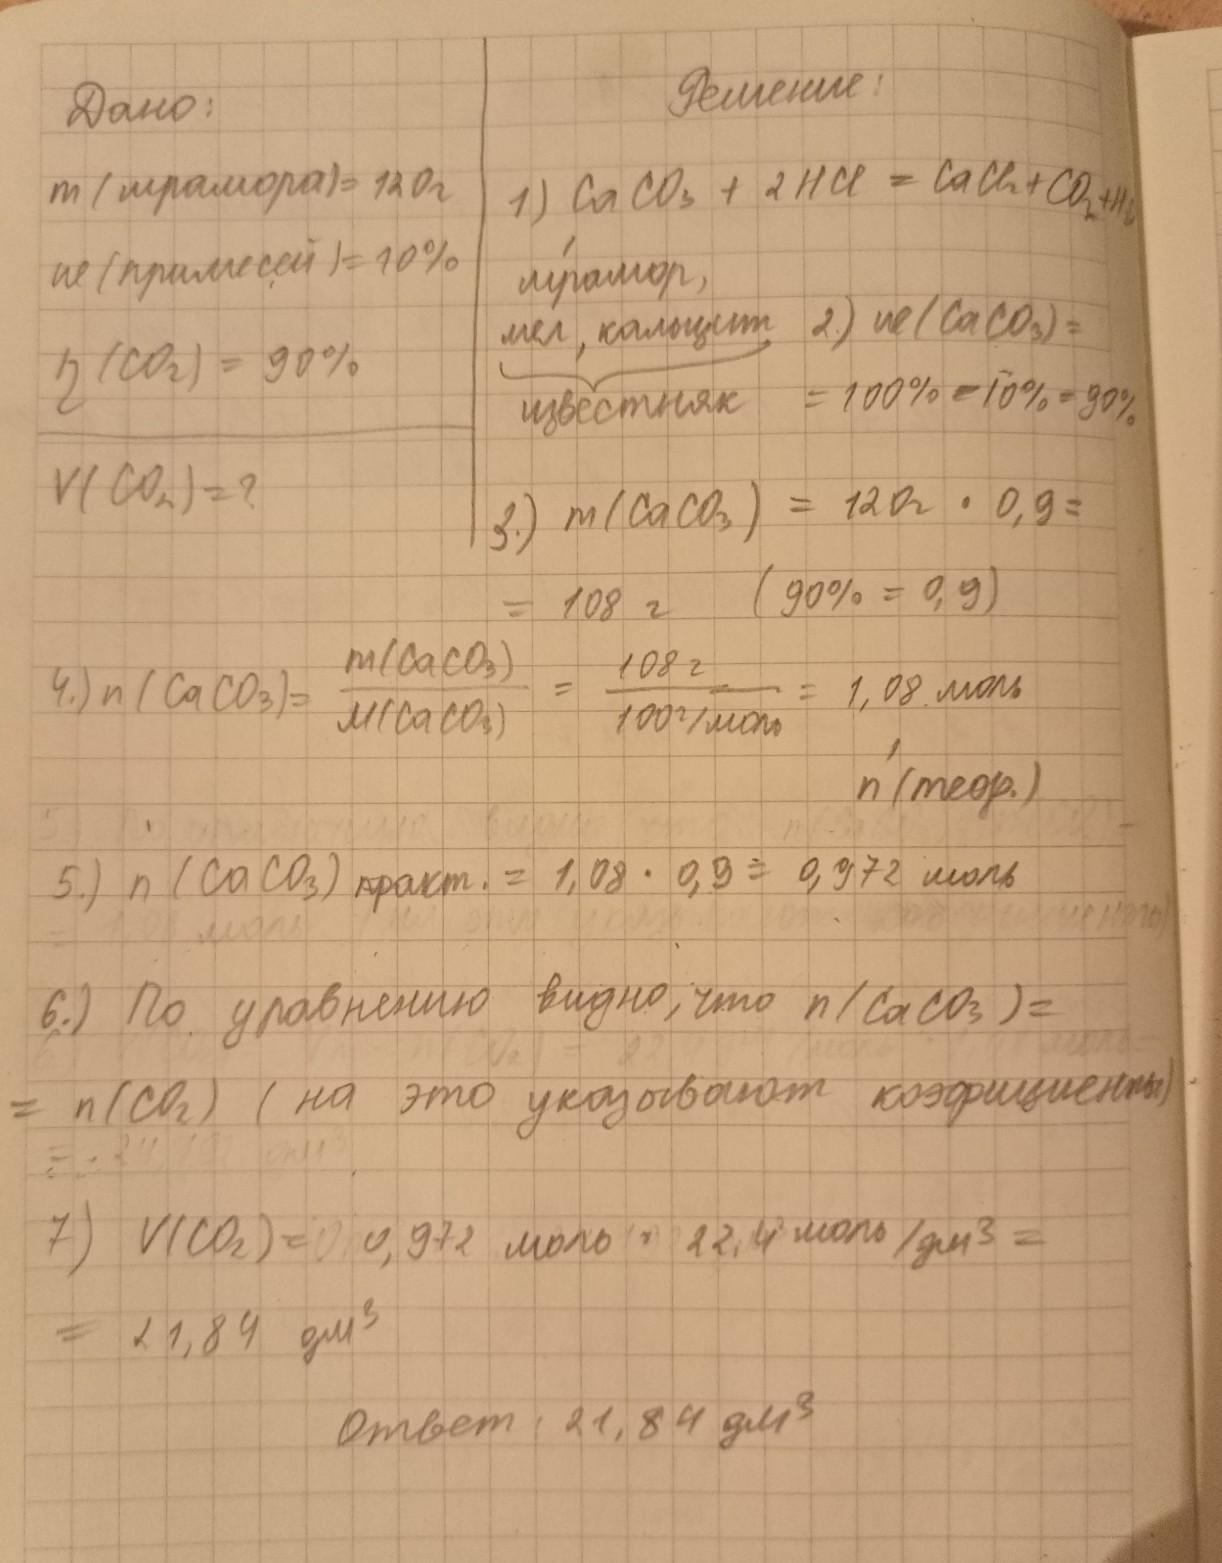 Дано:
m(мрамора)= 120г
ω(примесей)=10%
η(CO₂) = 90%
V(CO₂)=?
Решение:
1) CaCO₃ + 2HCl = CaCl₂+CO₂+H₂O
мрамор,
мел, кальцит
известняк
2.) ω(CaCO₃)=
= 100% - 10% = 90%
3.) m(CaCO₃) = 120г · 0,9=
= 108 г (90% = 0,9)
4.) n(CaCO₃)= m(CaCO₃)/M(CaCO₃) = 108г/100г/моль = 1,08 моль
n(теор.)
5.) n(CaCO₃) практ. = 1,08 · 0,9 = 0,972 моль
6.) По уравнению видно, что n(CaCO₃)=
= n(CO₂) (на это указывают коэфициенты)
7) V(CO₂)= 0,972 моль · 22,4 моль/дм³ =
= 21,84 дм³
Ответ: 21,84 дм³